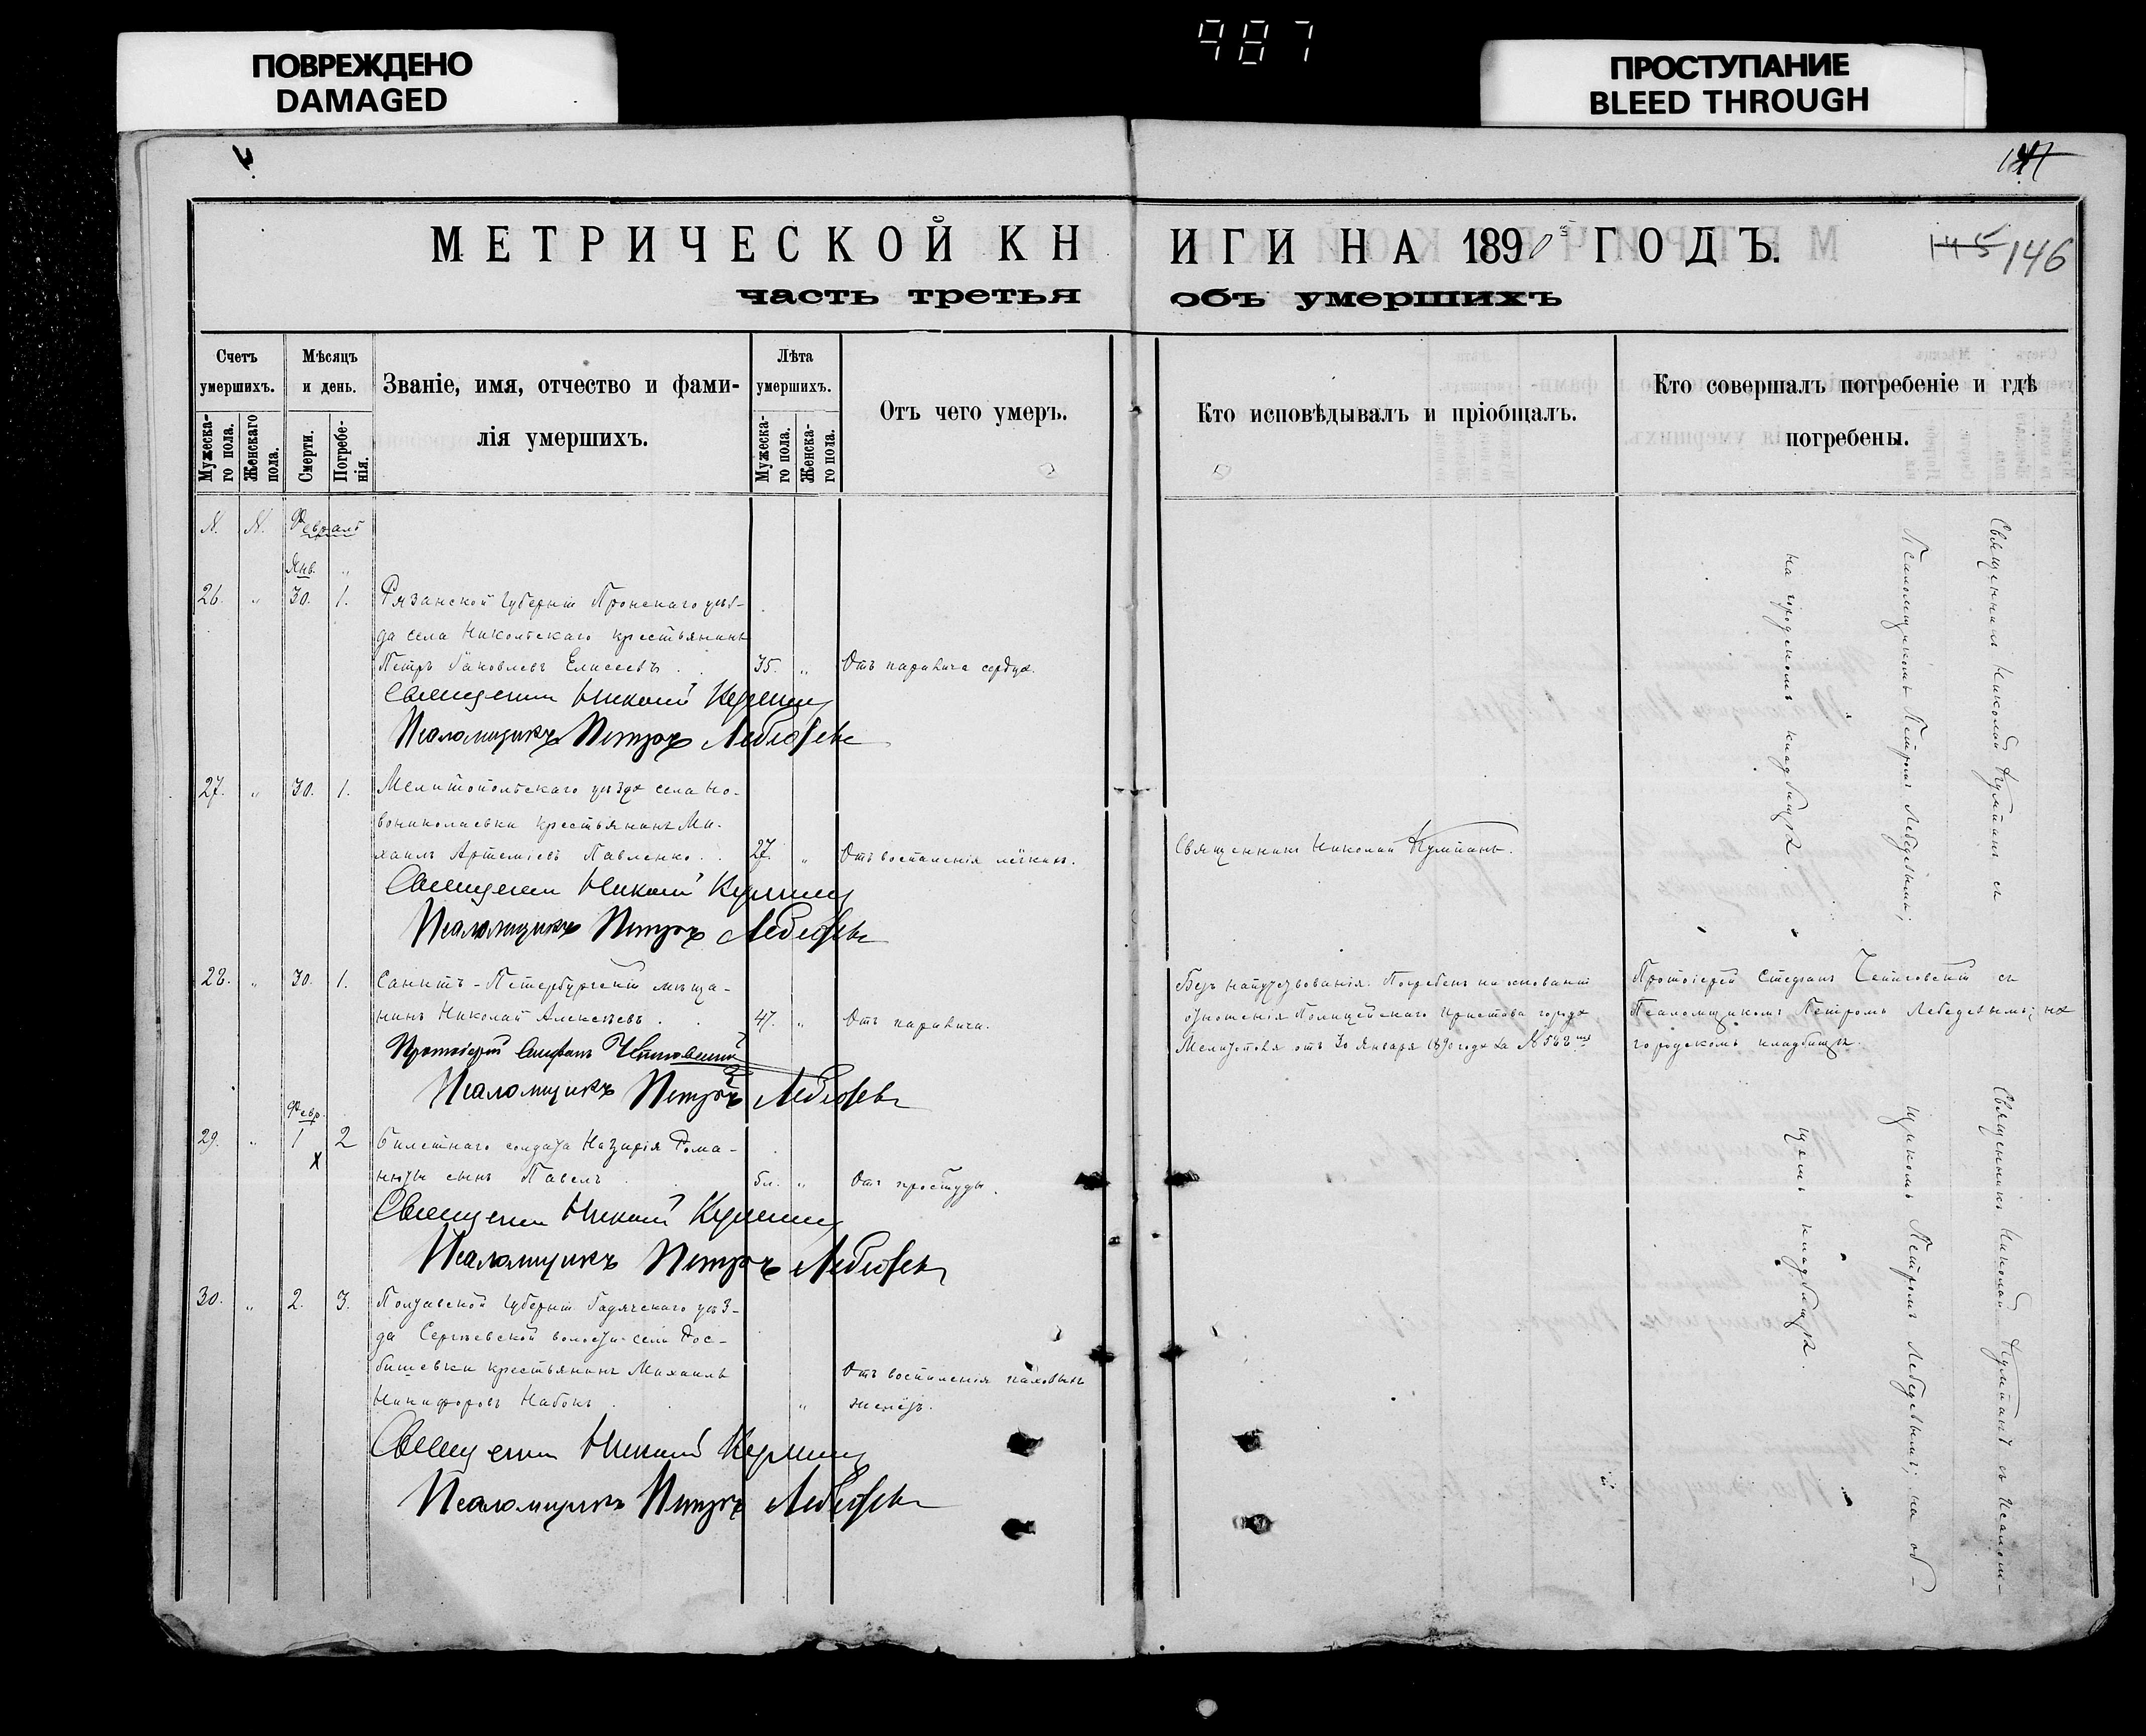 987
ПОВРЕЖДЕНО
DAMAGED
ПРОСТУПАНИЕ
BLEED THROUGH
145 146
МЕТРИЧЕСКОЙ КНИГИ НА 1890й ГОДЪ.
часть третья объ умершихъ
Счетъ умершихъ.
Мужеска-го пола.
Женскаго пола.
Мѣсяцъ и день.
Смерти.
Погребе-нія.
Званіе, имя, отчество и фами-
лія умершихъ.
Лѣта умершихъ.
Мужеска-го пола.
Женска-го пола.
Отъ чего умеръ.
Кто исповѣдывалъ и пріобщалъ.
Кто совершалъ погребеніе и гдѣ
погребены.
N. N. Февраль
Янв. „
26. „ 30. 1. Рязанской Губерніи Пронскаго уѣз-
да села Никольскаго крестьянинъ
Петръ Іаковлевъ Елисеевъ . . 35. „ Отъ паралича сердца.
Священник Николай Кумпан
Псаломщикъ Петръ Лебедевъ
27. „ 30. 1. Мелитопольскаго уѣзда села Но-
вониколаевки крестьянинъ Ми-
хаилъ Артеміевъ Павленко . . 27. „ Отъ воспаленія лёгкихъ. Священникъ Николай Кумпанъ.
Священник Николай Кумпан
Псаломщикъ Петръ Лебедевъ
Священникъ Николай Кумпанъ съ
Псаломщикомъ Петромъ Лебедевымъ;
на городскомъ кладбищѣ.
28. „ 30. 1. Санктъ-Петербургскій мѣща-
нинъ Николай Алексѣевъ . . 47. „ Отъ паралича.
Протоіерей Стефанъ
Псаломщикъ Петръ Лебедевъ
Безъ напутствованія. Погребенъ на основаніи
отношенія Полицейскаго Пристава города
Мелитополя отъ 30 Января 1890 года за № 588мъ
Протоіерей Стефанъ съ
Псаломщикомъ Петромъ Лебедевымъ; на
городскомъ кладбищѣ.
Февр.
29. „ 1 2 Билетнаго солдата Назарія Рома-
нюты сынъ Павелъ . . 5л. „ Отъ простуды.
X
Священник Николай Кумпан
Псаломщикъ Петръ Лебедевъ
30. „ 2. 3. Полтавской Губерніи Гадячскаго уѣз-
да Сергѣевской волости села Рос-
бишевки крестьянинъ Михаилъ
Никифоровъ Набокъ . . „ Отъ воспаленія паховыхъ
железъ.
Священник Николай Кумпан
Псаломщикъ Петръ Лебедевъ
Священникъ Николай Кумпанъ съ Псалом-
щикомъ Петромъ Лебедевымъ; на об-
щемъ кладбищѣ.